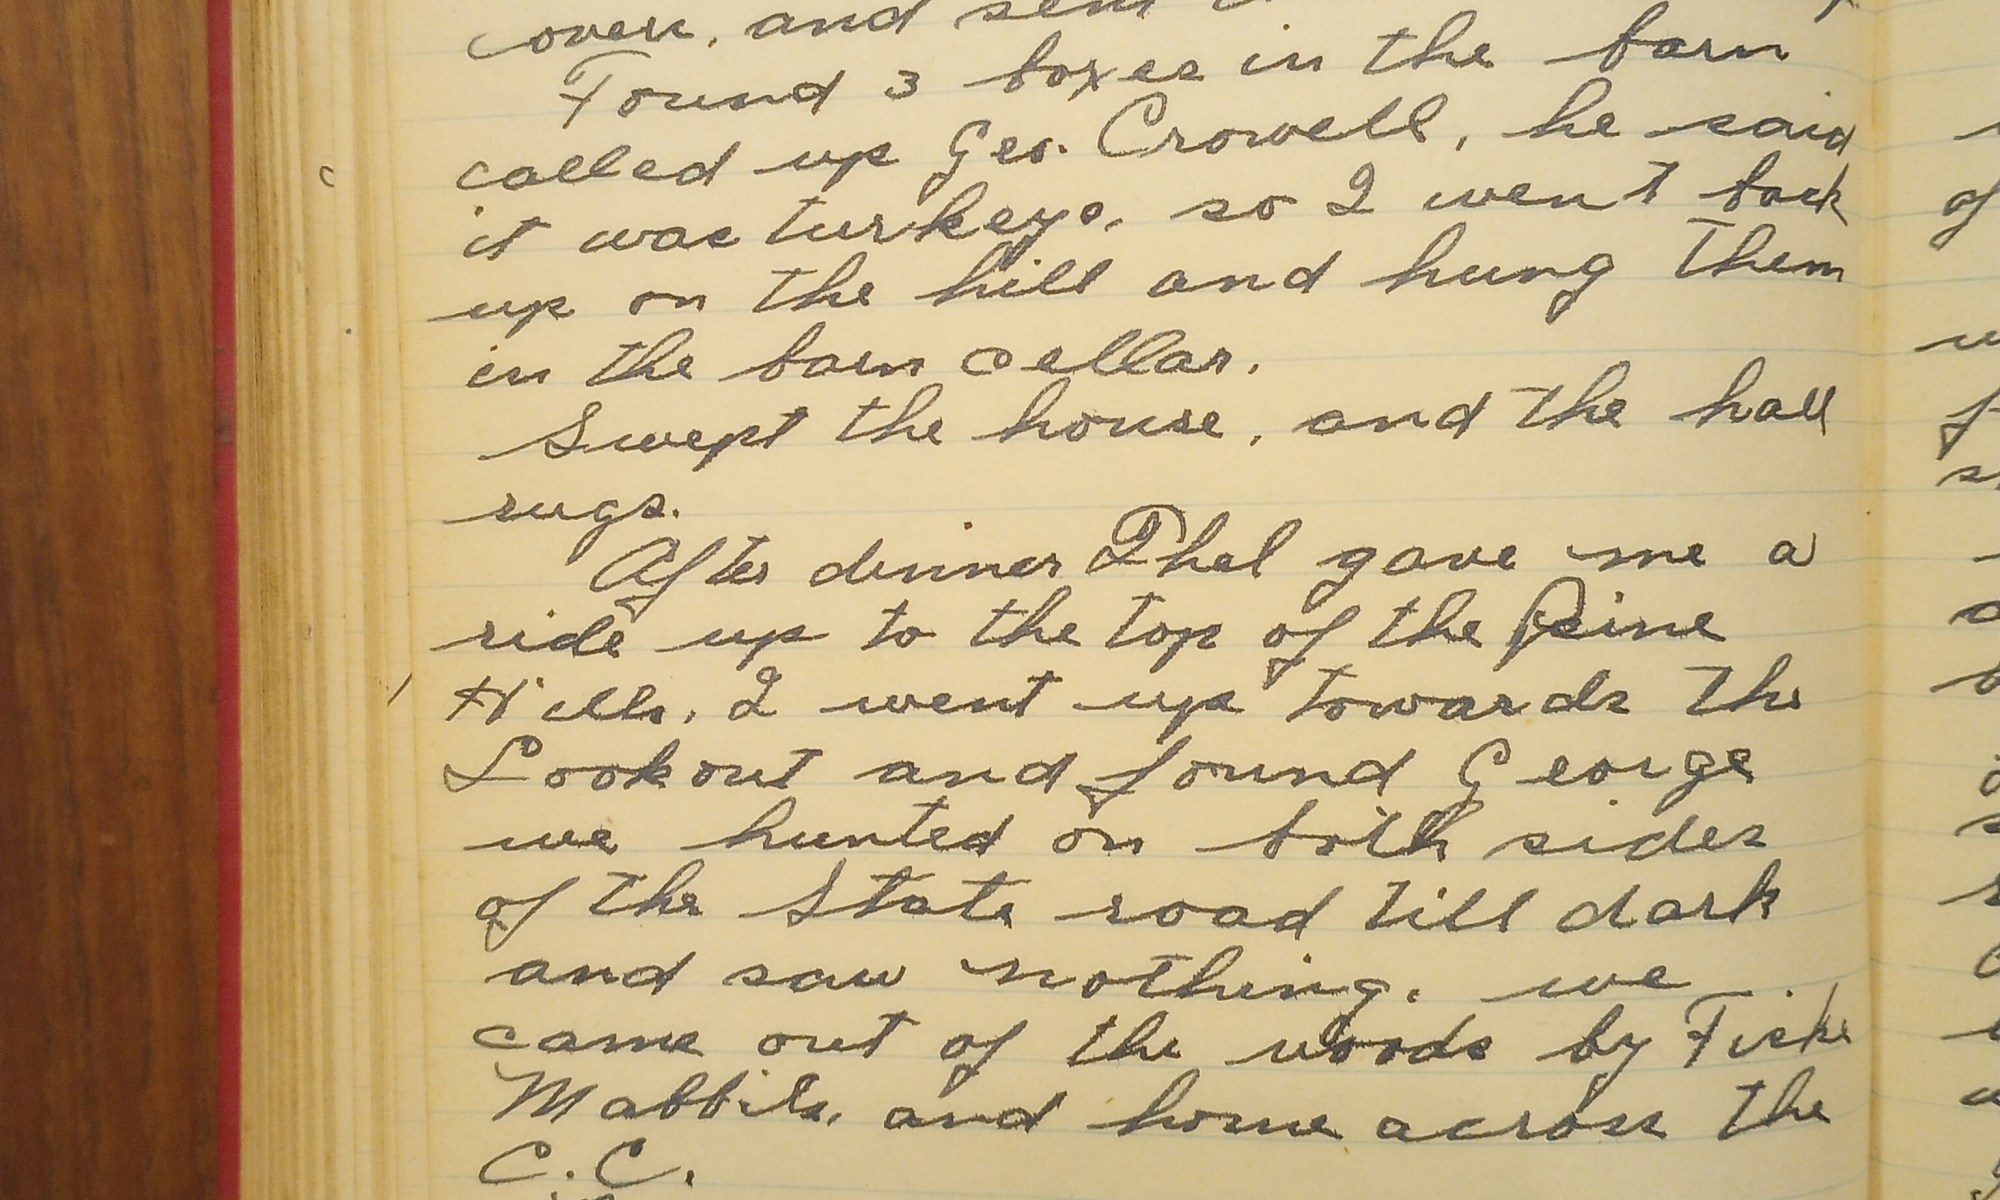 over, and sent
Found 3 boxes in the barn
called up Geo. Crowell, he said
it was turkeys, so I went back
up on the hill and hung them
in the barn cellar.
Swept the house, and the hall
rugs.
After dinner Phel gave me a
ride up to the top of the Pine
Hills, I went up towards the
Lookout and found George
we hunted on both sides
of the State road till dark
and saw nothing. we
came out of the woods by
and home across the
C.C.